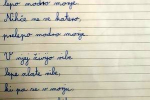 lepo modro morje.
Nihče ne ve katero,
prelepo modro morje.
V njej živijo ribe
lepe zlate ribe,
ki pa se v morje